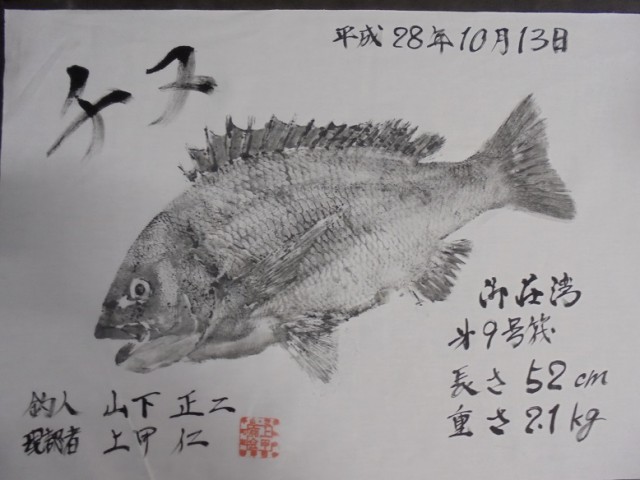 平成28年10月13日
チヌ
御荘湾
第9号筏
長さ 52cm
重さ 2.1kg
釣人 山下 正二
現認者 上甲 仁